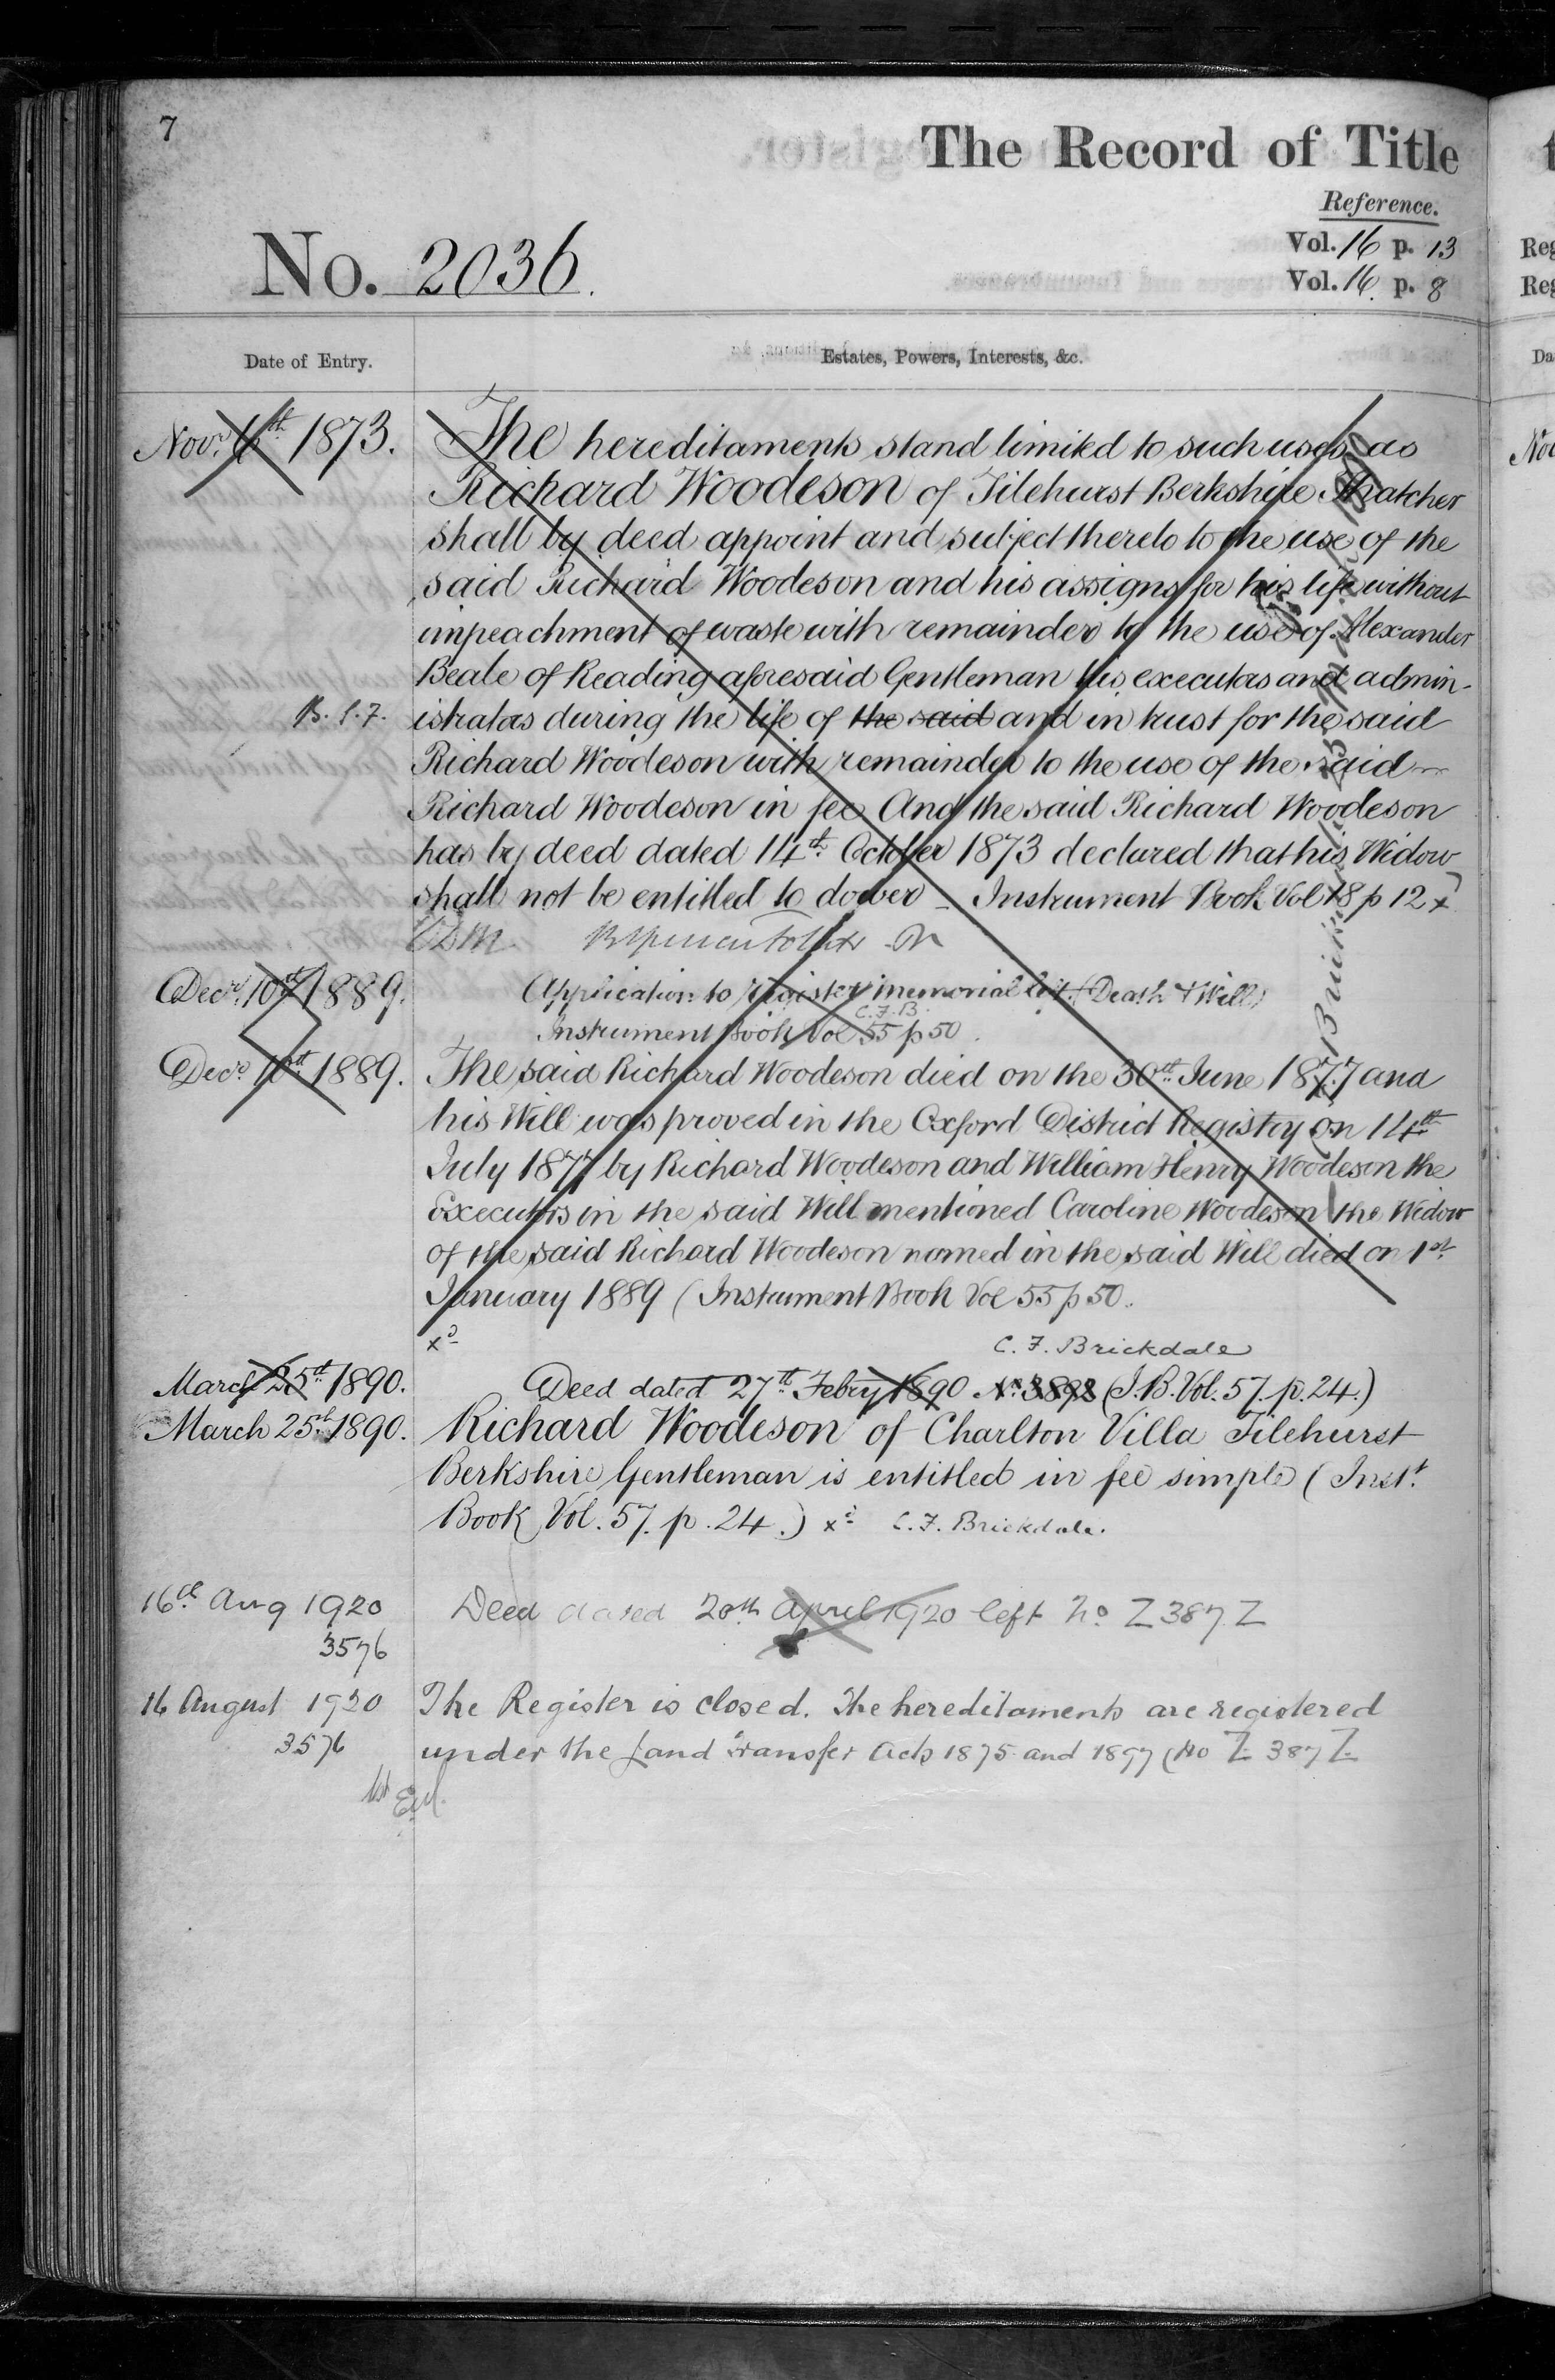 7
The Record of Title
Reference.
Vol. 16 p. 13
No. 2036.
Vol. 16. p. 8
Date of Entry.
Estates, Powers, Interests, &c.
Novr. 6th 1873.
The hereditaments stand limited to such uses as
Richard Woodeson of Tilehurst Berkshire Thatcher
shall by deed appoint and subject thereto to the use of the
said Richard Woodeson and his assigns for his life without
impeachment of waste with remainder to the use of Alexander
Beale of Reading aforesaid Gentleman his executors and admin-
istrators during the life of the said and in trust for the said
Richard Woodeson with remainder to the use of the said
Richard Woodeson in fee And the said Richard Woodeson
has by deed dated 14th. October 1873 declared that his Widow
shall not be entitled to dower - Instrument Book Vol 18 p 12 x
Decr. 10th 1889.
Application to register memorial left (Death & Will)
C.F.B.
Instrument Book Vol 55 p 50.
Decr. 10th 1889.
The said Richard Woodeson died on the 30th June 1877 and
his Will was proved in the Oxford District Registry on 14th
July 1877 by Richard Woodeson and William Henry Woodeson the
Executors in the said Will mentioned Caroline Woodeson the Widow
of the said Richard Woodeson named in the said Will died on 1st
January 1889 (Instrument Book Vol 55 p 50.
xd
C. F. Brickdale
March 25th 1890.
Deed dated 27th Febry 1890 No. 3898 (I.B. Vol. 57. p. 24.)
March 25th 1890.
Richard Woodeson of Charlton Villa Tilehurst
Berkshire Gentleman is entitled in fee simple (Inst.
Book Vol. 57. p. 24.) xd C. F. Brickdale.
16th Aug 1920
3576
Deed dated 20th April 1920 left No. Z 387 Z
16 August 1920
3576
The Register is closed. The hereditaments are registered
under the Land Transfer Acts 1875 and 1897 (No Z 387 Z
Reg
Reg
Da
Nov